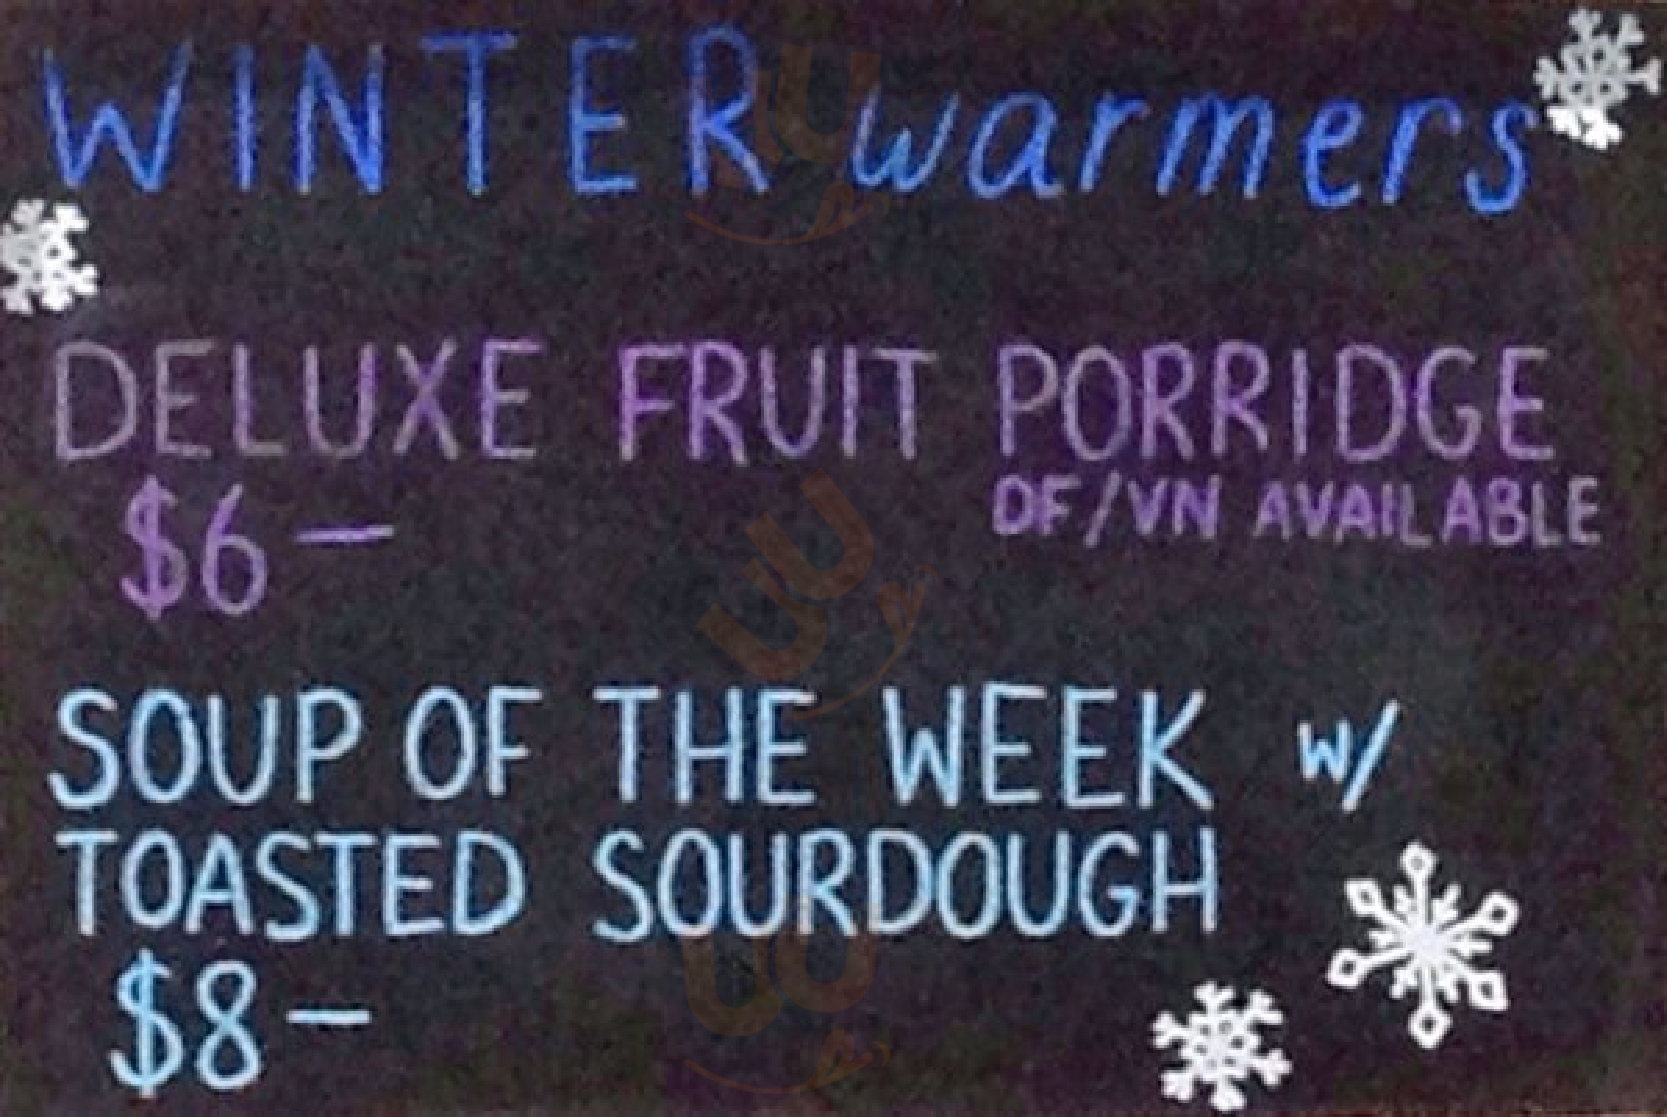 WINTER warmers
DELUXE FRUIT PORRIDGE
DF/VN AVAILABLE
$6—
SOUP OF THE WEEK w/
TOASTED SOURDOUGH
$8—